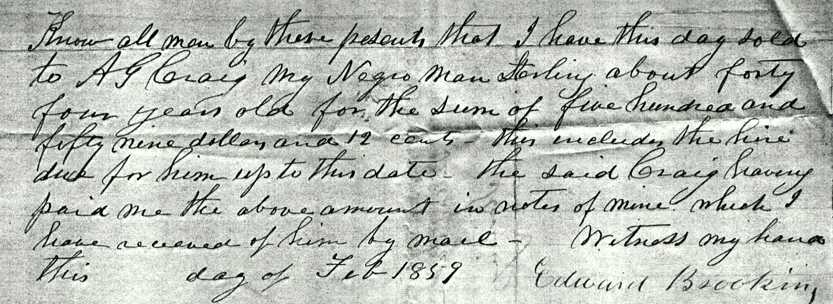 Know all men by these presents that I have this day sold
to A G Craig my Negro man Sterling about forty
four years old for the sum of five hundred and
fifty nine dollars and 12 cents - this includes the hire
due for him up to this date - the said Craig having
paid me the above amount in notes of mine which I
have received of him by mail - Witness my hand
this day of Feb 1859 Edward Brookin,